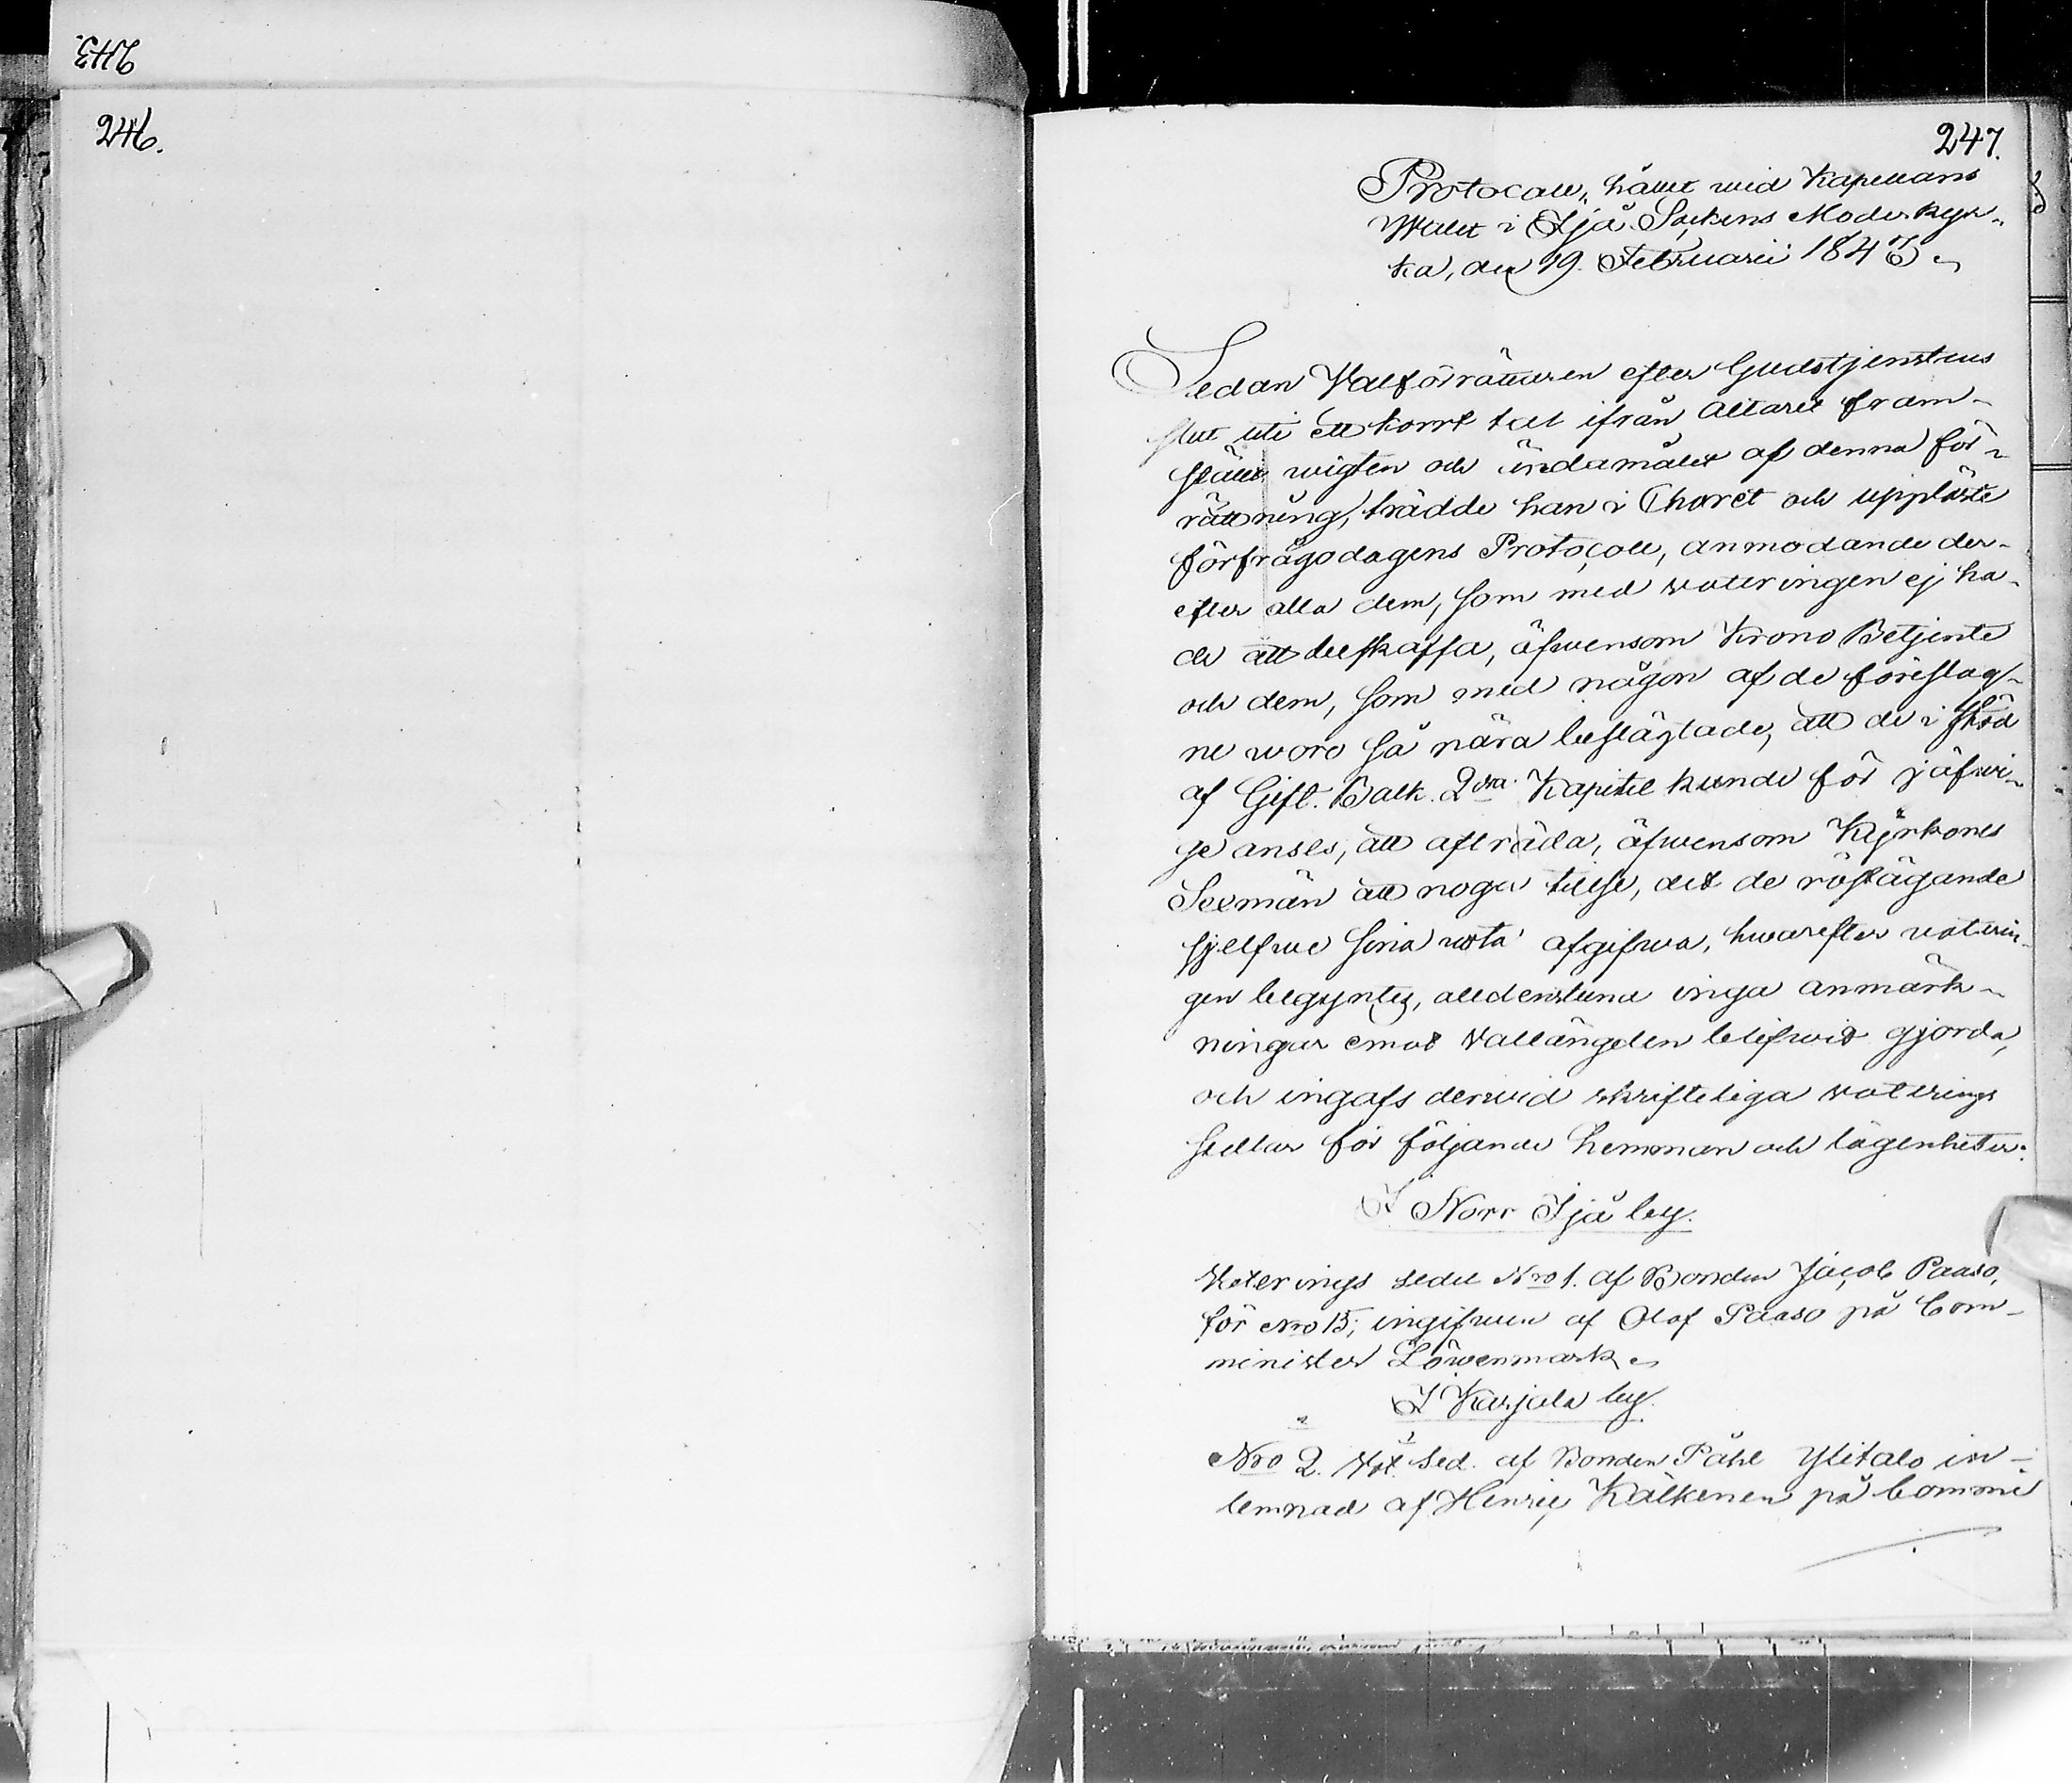 243.
246.
247.
Protocoll, hållet wid Kapellans
Walet i Ijå Sockens Moderkyr-
ka, den 19. Februarii 1843.
Sedan Valförrättaren efter Gudstjenstens
slut uti ett kort tal ifrån Altaret fram-
ställt wigten och ändamålet af denna för-
rättning, trädde han i Choret och uppläste
förfrågodagens Protocoll, anmodande der-
efter alla dem, som med voteringen ej ha-
de att beskaffa, äfwensom Krono Betjente
och dem, som med någon af de föreslag-
ne woro så nära beslägtade, att de i stöd
af Gift. Balk. 2dra Kapitel kunde för jäfwi-
ge anses, att afträda, äfwensom Kyrkones
Sexmän att noga tillse, det de röstägande
sjelfwe sina vota afgifwa, hwarefter voterin-
gen begyntes, alldenstund inga anmärk-
ningar emot Vallängden blifwit gjorda,
och ingafs derwid skrifteliga voterings
sedlar för följande hemman och lägenheter:
I Norr Ijå by.
Voterings sedel Nro 1. af Bonden Jacob Paaso,
för Nro 15, ingifwen af Olof Paaso på Com-
minister Löwenmark.
I Karjala by.
Nro 2. Vot. Sed. af Bonden Påhl Ylitalo in-
lemnad af Henric Kälkenen på Commi